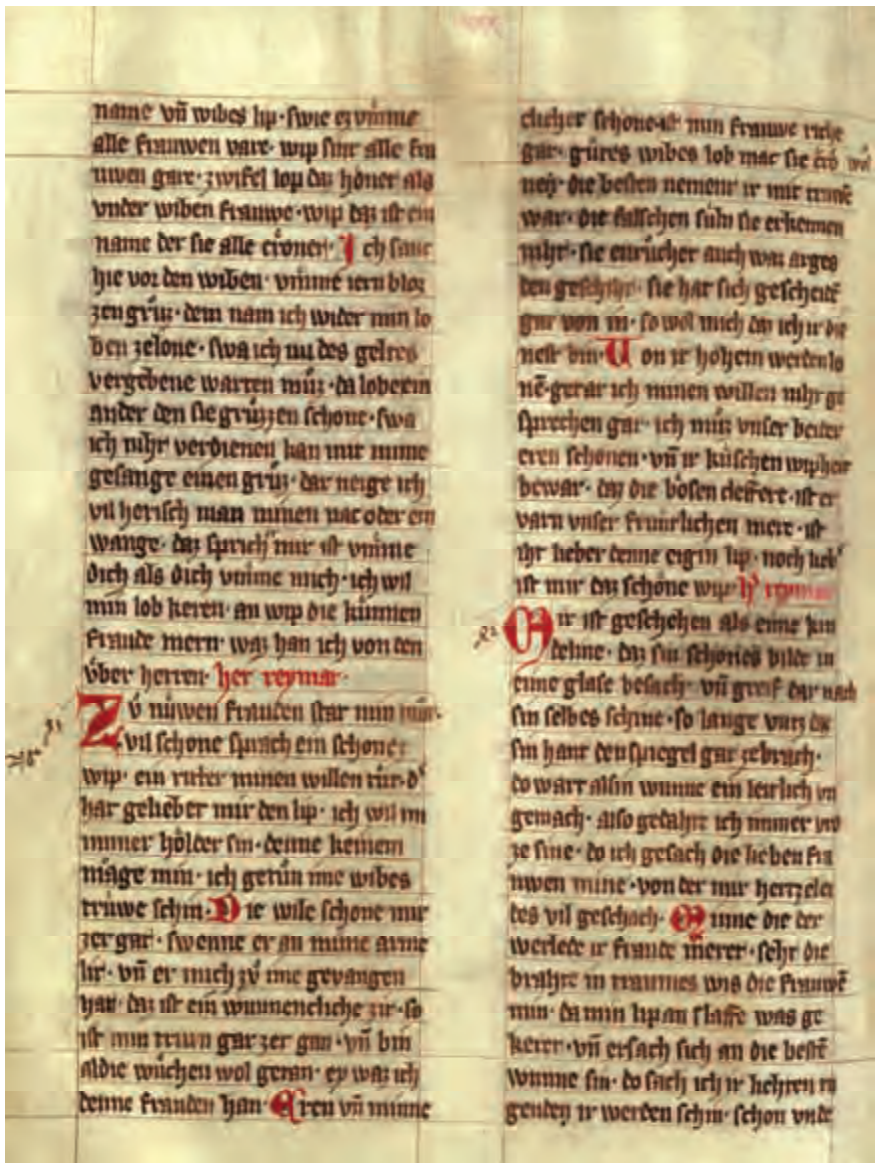 name vn̄ wibes lip · swie ez vmme
alle frauwen vare · wip sint alle fra
uwen gare · zwifel lop daz hőnet als
vnder wiben frauwe · wip daz ist ein
name der sie alle crőnet · Ich sanc
hie vor den wiben · vmme iern bloz
zen grůz · dem nam ich wider min lo
ben zelone · swa ich nu des geltes
vergebene warten můz · da lobe ein
ander den sie grůzzen schone · swa
ich niht verdienen kan mit mime
gesange einen grůz · dar neige ich
vil herisch man minen nac oder ein
wange · daz sprich mir ist vmme
dich als dich vmme mich · ich wil
min lob keren · an wip die kűnnen
fraude mern · waz han ich von den
űber herren · her reymar ·
Zů nűwen frauden stat min můt ·
vil schone sprach ein schonez
wip · ein ritter minen willen tůt · d'
hat geliebet mir den lip · ich wil im
immer hőlder sin · denne keinem
mage min · ich getůn ime wibes
trűwe schin · Die wile schone mir
zergat · swenne er an mime arme
lit · vn̄ er mich zů ime gevangen
hat · daz ist ein wunnencliche zit · so
ist min truren gar zer gan · vn̄ bin
aldie wůchen wol getan · ey waz ich
denne frauden han · Eren vn̄ minne
clicher schone · ist min frauwe riche
gar · gůtes wibes lob mac sie
ney · die besten nement ir mit
war · die falschen suln sie erkennen
niht · sie enrůchet auch waz arges
den geschiht · sie hat sich gescheidē
gar von in · so wol mich daz ich ir die
nest bin · Von ir hohem werden lo
nē · getar ich minen willen niht ge
sprechen gar · ich můz vnser beider
eren schonen · vn̄ ir kűschen wipheit
bewar · daz die bősen cleffere · ist er
varn vnser fruntlichen mere · ist
iht lieber denne eigin lip · noch lieb'
ist mir daz schőne wip · h' reymar
Mir ist geschehen als eime kin
deline · daz sin schőnes bilde in
eime glase besach · vn̄ greif dar nach
sin selbes schine · so lange vntz daz
sin hant den spiegel gar zebrach ·
do wart alsin wunne ein leitlich vn
gemach · also gedaht ich immer vro
ze sine · do ich gesach die lieben fra
uwen mine · von der mir hertzelei
des vil geschach · Minne die der
werlede ir fraude meret · seht die
brahte in traumes wis die frauwē
min · da min lip an slaffe was ge
keret · vn̄ ersach sich an die bestē
wunne sin · do sach ich ir liehten tu
genden ir werden schin · schon vnde